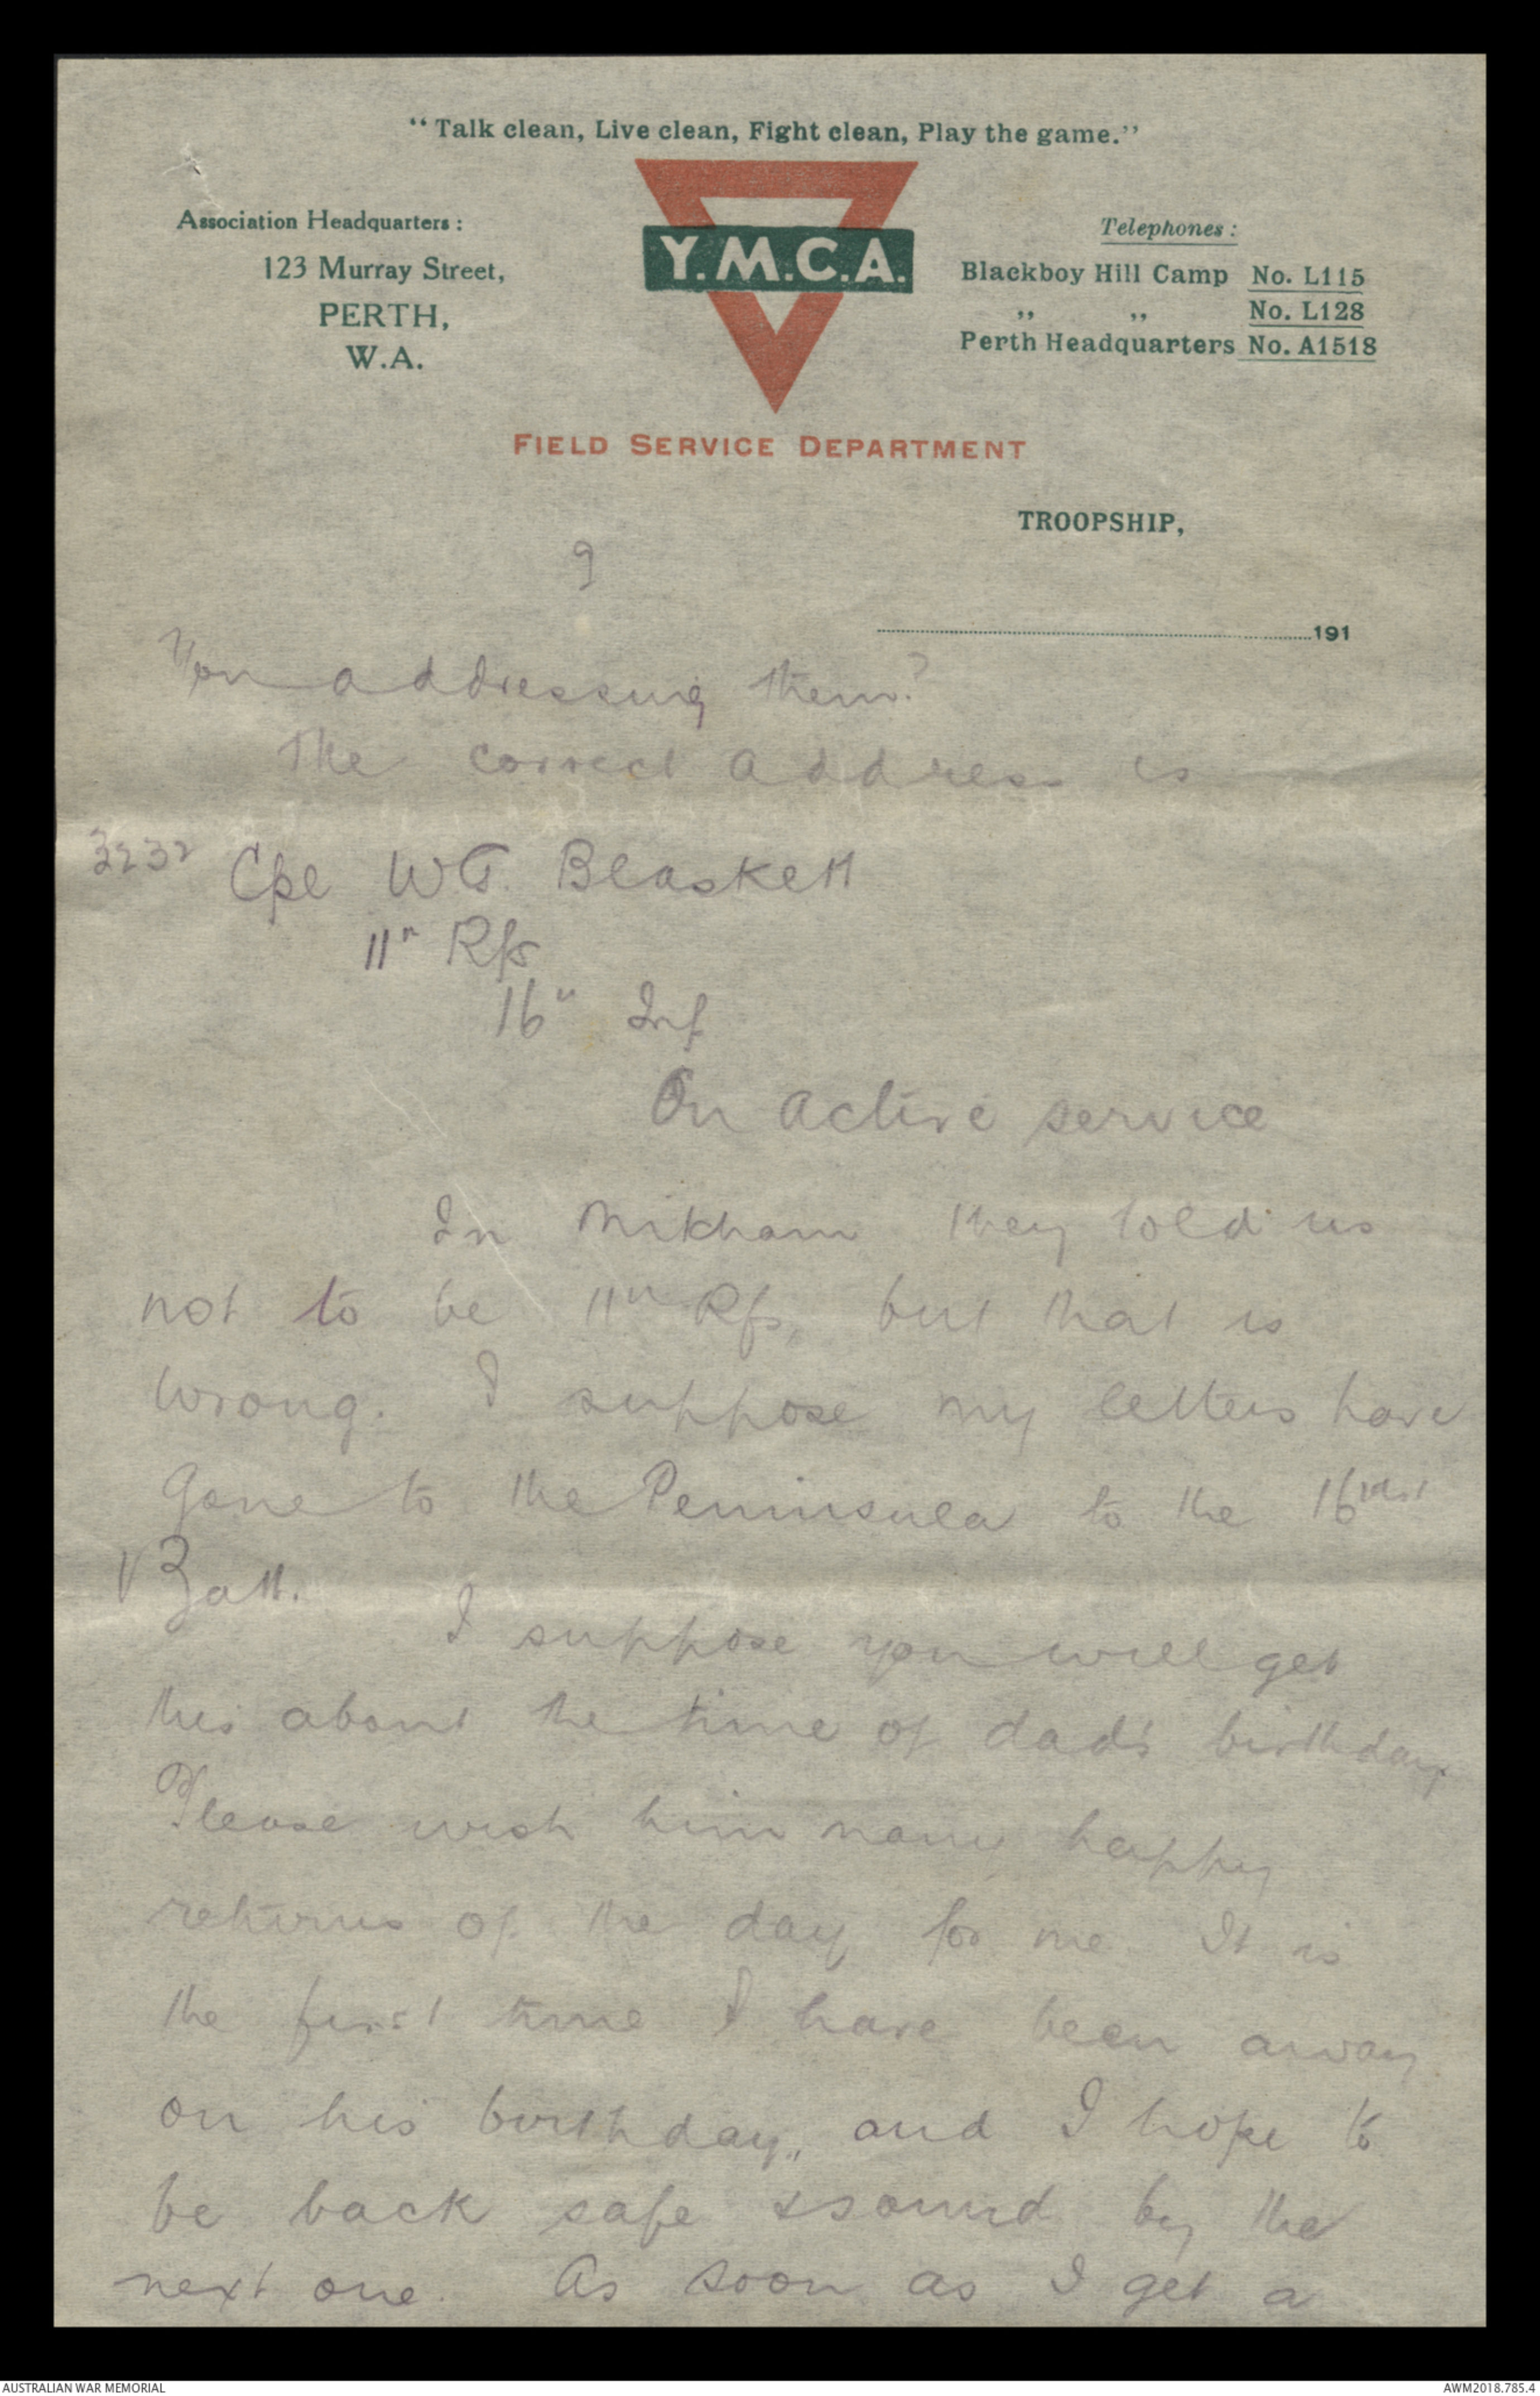 "Talk clean, Live clean, Fight clean, Play the game."
Association Headquarters:
123 Murray Street,
PERTH,
W.A.
Y.M.C.A.
Telephones:
Blackboy Hill Camp No. L115
" " No. L128
Perth Headquarters No. A1518
FIELD SERVICE DEPARTMENT
TROOPSHIP,
9
191
You addressing them?
The correct address is
3232 Cpl W G. Blaskett
11th Rfs
16th Inf
On active service
In they told us
not to be 11th Rfs, but that is
wrong. I suppose my letters have
gone to the Peninsula to the 16th
Batt.
I suppose you will get
this about the time of dad's birthday
Please wish him many happy
returns of the day for me. It is
the first time I have been away
on his birthday, and I hope to
be back safe & sound by the
next one. As soon as I get a
AUSTRALIAN WAR MEMORIAL
AWM2018.785.4